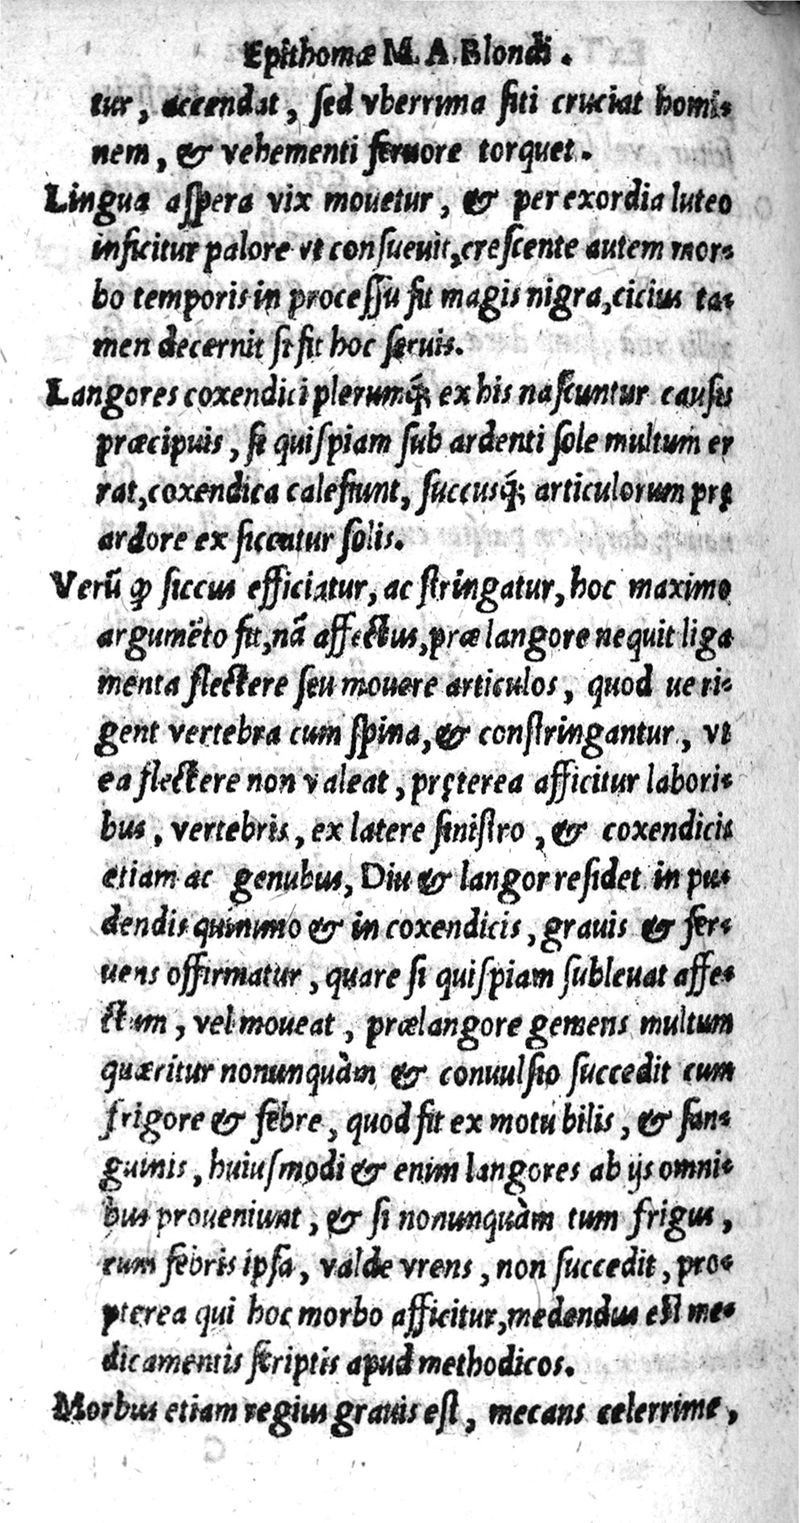 Epithomæ M. A. Blondi.
tur, accendat, sed vberrima siti cruciat homi-
nem, & vehementi feruore torquet.
Lingua aspera vix mouetur, & per exordia luteo
inficitur palore vt consueuit, crescente autem mor-
bo temporis in processu fit magis nigra, cicius ta-
men decernit si fit hoc seruis.
Langores coxendici plerumq́; ex his nascuntur causis
præcipuis, si quispiam sub ardenti sole multum er
rat, coxendica calefiunt, succusq́; articulorum prę
ardore exsiccatur solis.
Verũ ꝙ siccus efficiatur, ac stringatur, hoc maximo
argumẽto fit, nã affectus, præ langore nequit liga
menta flectere seu mouere articulos, quod ue ri-
gent vertebra cum spina, & constringantur, vt
ea flectere non valeat, pręterea afficitur labori-
bus, vertebris, ex latere sinistro, & coxendicis
etiam ac genubus, Diu & langor residet in pu-
dendis quinimo & in coxendicis, grauis & fer-
uens offirmatur, quare si quispiam subleuat affe-
ctum, vel moueat, præ langore gemens multum
quæritur nonunquàm & conuulsio succedit cum
frigore & febre, quod fit ex motu bilis, & san-
guinis, huiusmodi & enim langores ab ijs omni-
bus proueniunt, & si nonunquàm tum frigus,
tum febris ipsa, valde vrens, non succedit, pro-
pterea qui hoc morbo afficitur, medendus est me-
dicamentis scriptis apud methodicos.
Morbus etiam regius grauis est, mecans celerrime,